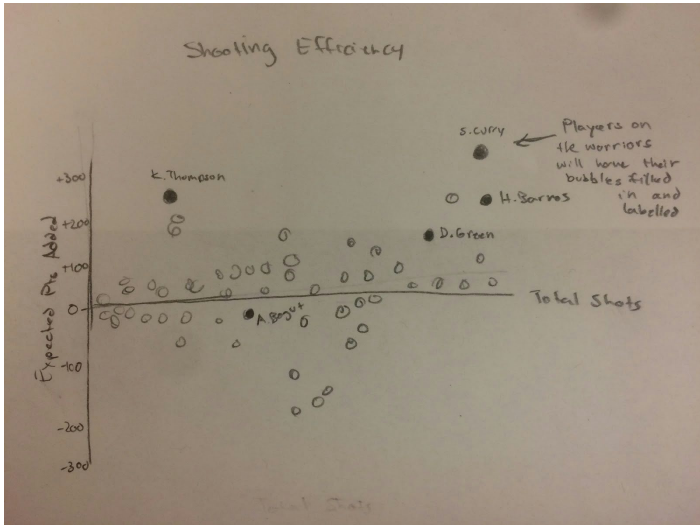 Shooting Efficiency
S. Curry
Players on
the worriors
will have their
bubbles filled
in and
labelled
K. Thompson
H. Barnes
D. Green
A. Bogut
Expected Pts Added
+300
+200
+100
0
-100
-200
-300
Total Shots
Total Shots